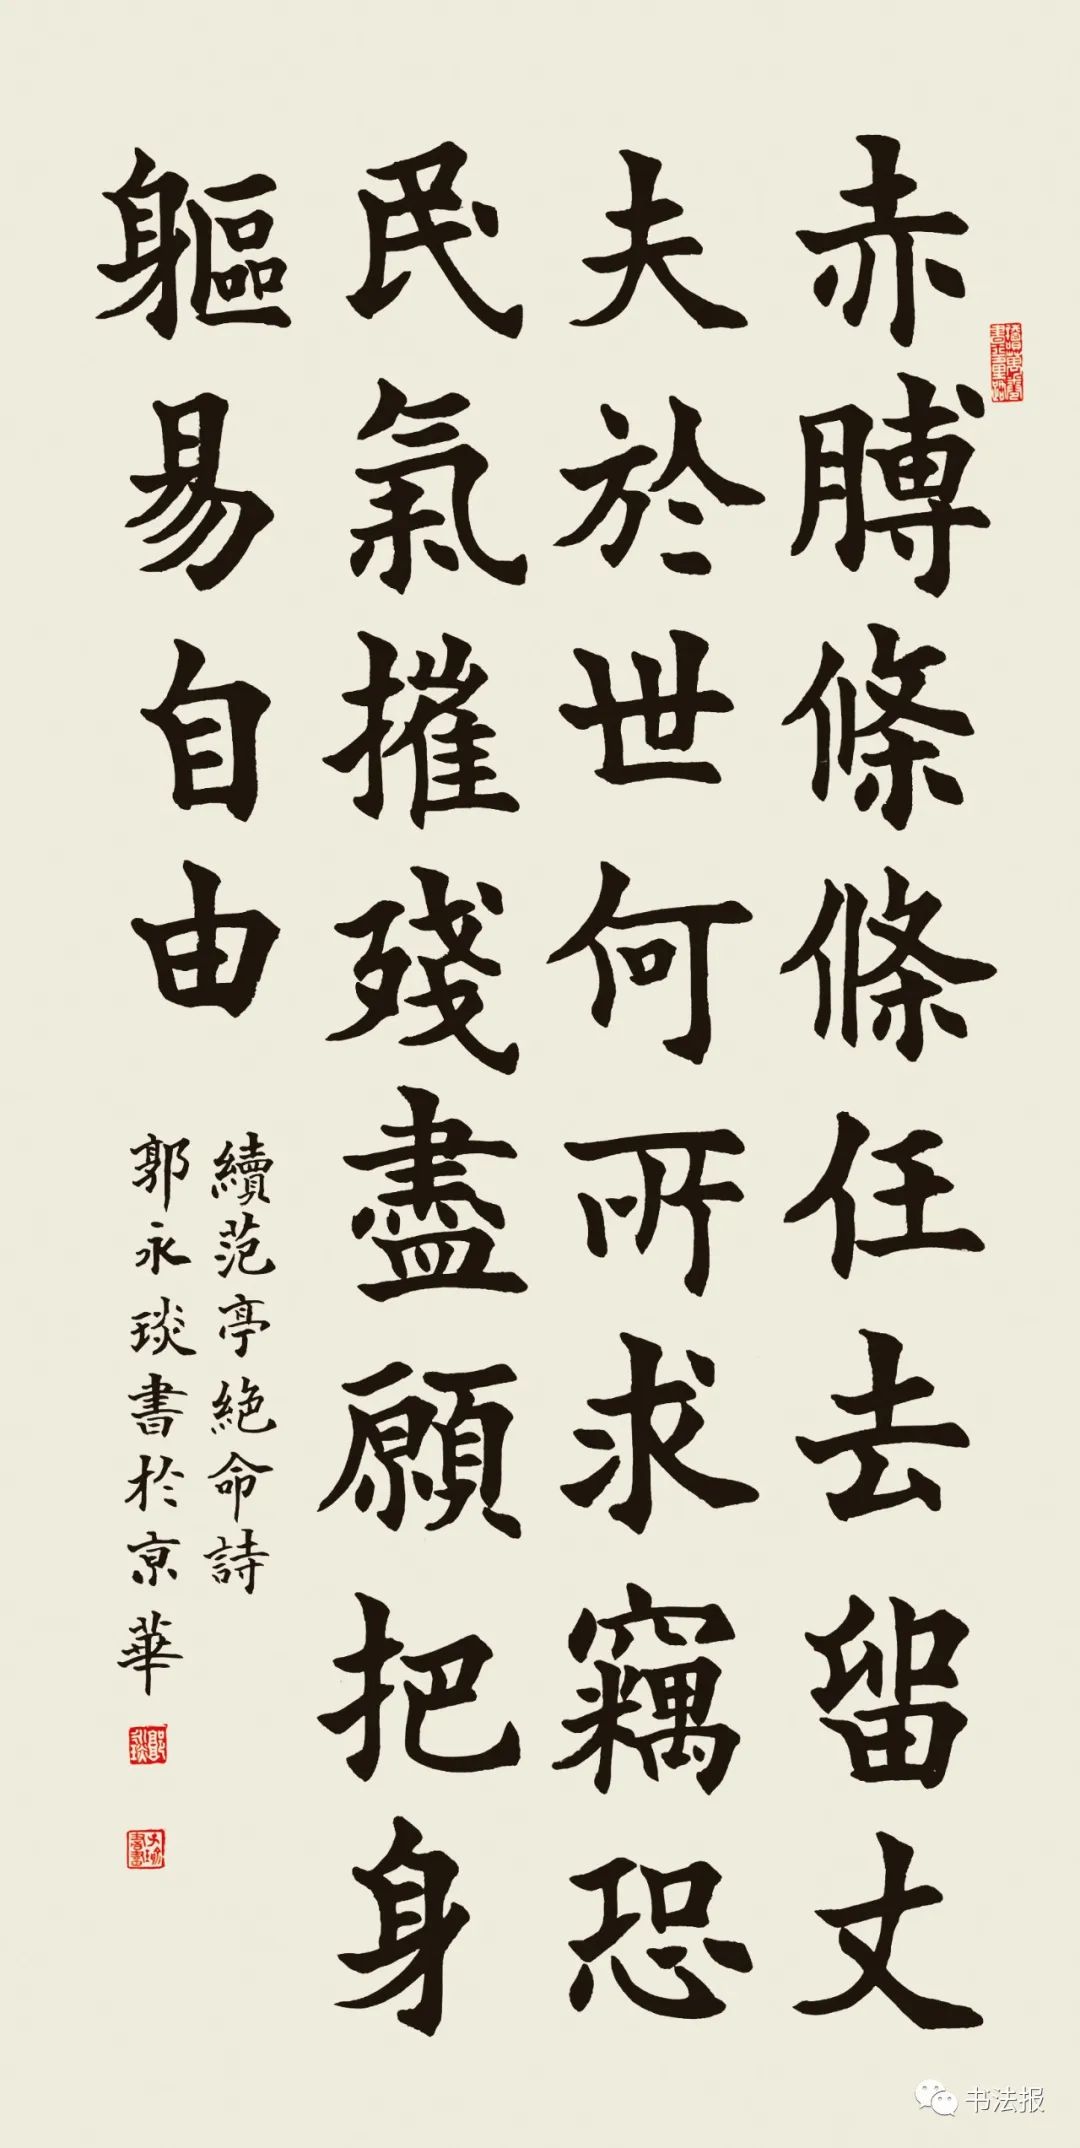 赤膊條條任去留丈
夫於世何所求竊恐
民氣摧殘盡願把身
軀易自由
續范亭絕命詩
郭永琰書於京華
郭永琰
书法报